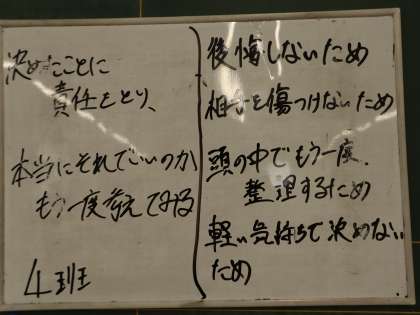 決めたことに
責任をとり、
本当にそれでいいのか
もう一度考えてみる
4班
後悔しないため
相手を傷つけないため
頭の中でもう一度、
整理するため
軽い気持ちで決めない
ため